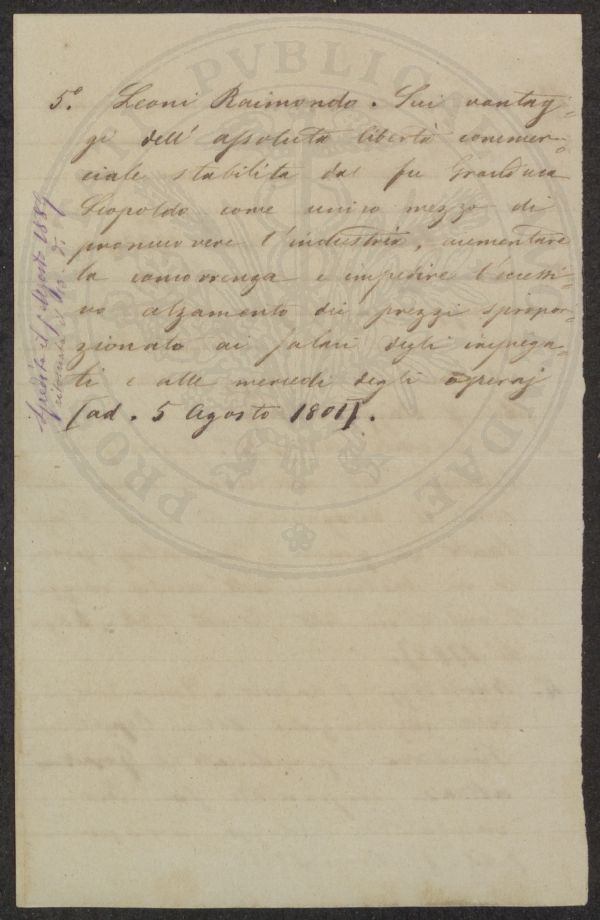 5.° Leoni Raimondo. Sui vantag-
gi dell' assoluta libertà commer-
ciale stabilita dal fu Granduca
Leopoldo come unico mezzo di
promuovere l'industria, aumentare
la concorrenza e impedire l'eccessi-
vo alzamento dei prezzi spropor-
zionato ai salari degli impiega-
ti e alle mercedi degli operaj
(ad. 5 Agosto 1801).
Agosto 1889
PUBLICAE
PRO